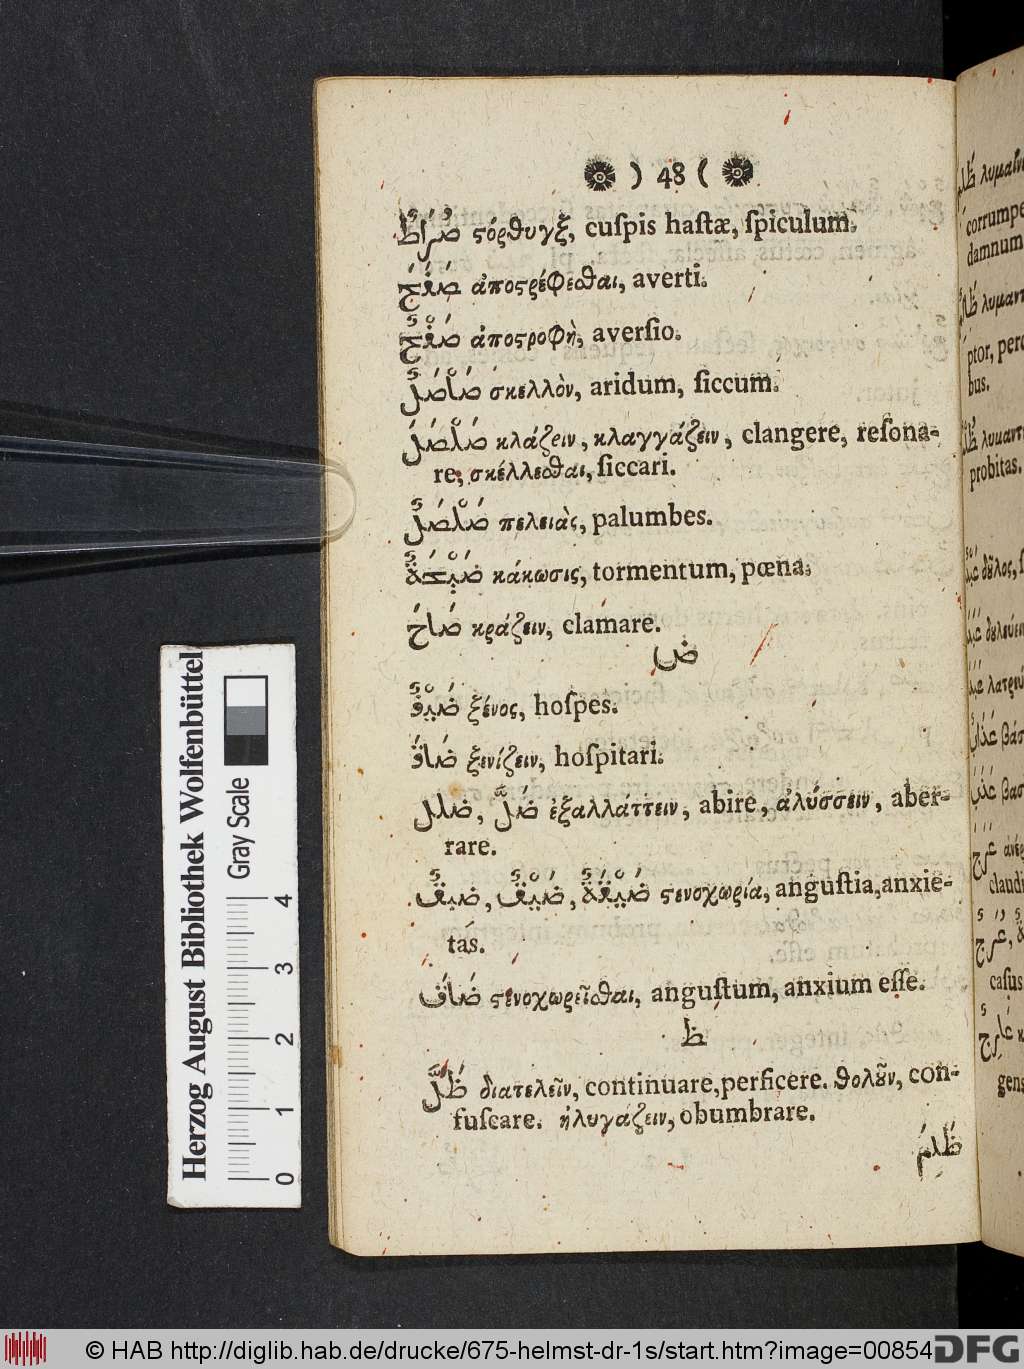 ) 48 (
صُرَاطٌ ϛόρθυγξ, cuſpis haſtæ, ſpiculum.
صَفَحَ ἀποϛρέφεσθαι, averti.
صَفْحٌ ἀποϛροφὴ, averſio.
صَلْصَلٌ σκελλὸν, aridum, ſiccum.
صَلْصَلَ κλάζειν, κλαγγάζειν, clangere, reſona-
re, σκέλλεσθαι, ſiccari.
صَلْصَلٌ πελειὰς, palumbes.
صَيْحَةٌ κάκωσις, tormentum, pœna.
صَاحَ κράζειν, clamare.
ض
ضَيْفٌ ξένος, hoſpes.
ضَافَ ξενίζειν, hoſpitari.
ضلل, ضَلَّ ἐξαλλάττειν, abire, ἀλύσσειν, aber-
rare.
ضيقٌ, ضَيْقٌ, ضَيْقَةٌ ϛενοχωρία, anguſtia, anxie-
tas.
ضَاقَ ϛενοχωρεῖσθαι, anguſtum, anxium eſſe.
ظ
ظَلَّ διατελεῖν, continuare, perficere. θολοῦν, con-
fuſcare. ἠλυγάζειν, obumbrare.
ظَلَمَ
λυμαίν
corrumpe
damnum
λυμαντ
ptor, perd
bus.
λυμαντ
probitas.
δοῦλος,
δουλεύειν
λατρευ
βάσ
βασ
claudi
casus
gens
Herzog August Bibliothek Wolfenbüttel
Gray Scale
0 1 2 3 4
© HAB http://diglib.hab.de/drucke/675-helmst-dr-1s/start.htm?image=00854
DFG